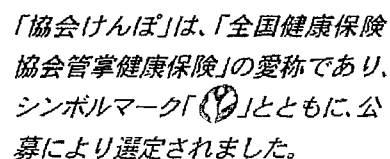 「協会けんぽ」は、「全国健康保険
協会管掌健康保険」の愛称であり、
シンボルマーク「」とともに、公
募により選定されました。